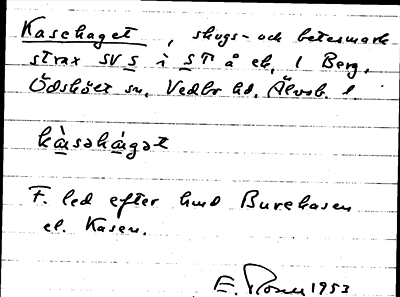 Kaschaget, skogs- och betesmark
strax SV s i STÅ ek, 1 Berg,
Ödskölt sn, Vedbo hd, Älvsb. l.
kàsahágat
F. led efter hmd Burehasen
el. Kasen.
E. 1953